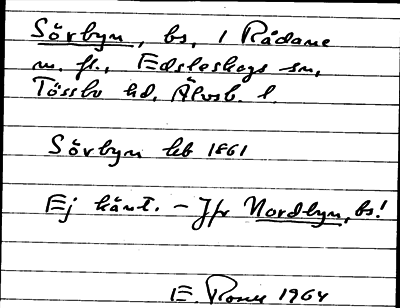 Sörbyn, bs, 1 Rådane
m. fl., Edsleskogs sn,
Tössbo hd, Älvsb. l.
Sörbyn hb 1861
Ej känt. - Jfr Nordbyn, bs!
E. 1964